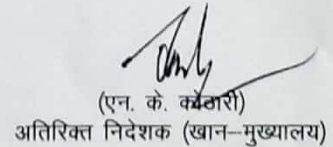 (एन. के. कोठारी)
अतिरिक्त निदेशक (खान–मुख्यालय)